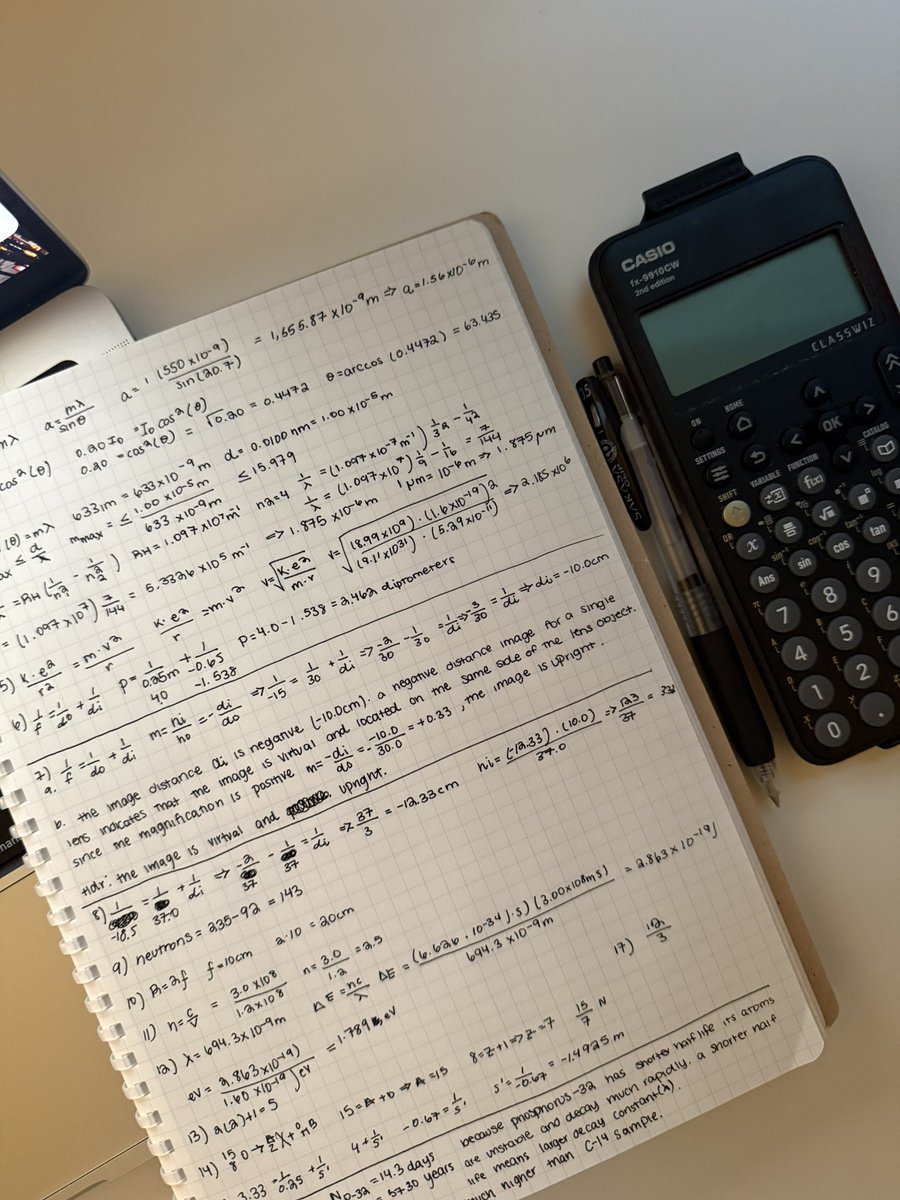 mλ a = mλ/sinθ a = 1 (550 x10⁻⁹)/sin(20.7) = 1,555.87 x10⁻⁹m => a=1.56x10⁻⁶m
cos²(θ) 0.20 I₀ = I₀cos²(θ)
0.20 = cos²(θ) = √0.20 = 0.4472 θ=arccos (0.4472) = 63.435
633nm = 633x10⁻⁹m d = 0.0100 nm = 1.00 x10⁻⁵m
(θ) = mλ
max ≤ a/λ mmax = ≤ 1.00 x10⁻⁵m/633 x10⁻⁹m ≤ 15.979
= RH(1/n² - 1/n²) RH = 1.097x10⁷m⁻¹ n2=4 1/λ = (1.097x10⁻⁷m⁻¹) 1/3² - 1/4²
1/λ = (1.097x10⁷) 1/9 - 1/16 = 7/144
= (1.097 x10⁷) 7/144 = 5.3326 x10⁵ m⁻¹ => 1.875 x10⁻⁶m 1μm = 10⁻⁶m => 1.875 μm
5) k·e²/r² = m·v²/r k·e²/r = m·v² v=√k·e²/m·r v=√(8.99x10⁹)·(1.6x10⁻¹⁹)²/(9.11x10³¹)·(5.29x10⁻¹¹) => 2.185x10⁶
6) 1/f = 1/do + 1/di p = 1/0.25m + 1/-0.65 p=4.0-1.538 = 2.462 dioptrometers
4.0 -1.538
7) a. 1/f = 1/do + 1/di m = hi/ho = -di/do => 1/-15 = 1/30 + 1/di => -2/30 - 1/30 = 1/di => -3/30 = 1/di => di = -10.0cm
b. the image distance di is negative (-10.0cm). a negative distance image for a single
lens indicates that the image is virtual and located on the same side of the lens object.
since the magnification is positive m = -di/do = -10.0/30.0 = +0.33, the image is upright.
tldr: the image is virtual and upright.
8) 1/-18.5 = 1/37.0 + 1/di => -2/37 - 1/37 = 1/di => 37/3 = -12.33cm hi = (-12.33)·(10.0)/37.0 => 123/37 =
9) neutrons = 235-92 = 143
10) R=2f f=10cm 2·10 = 20cm
11) n = c/v = 3.0 x10⁸/1.2x10⁸ n = 3.0/1.2 = 2.5
12) λ = 694.3x10⁻⁹m ΔE = hc/λ ΔE = (6.626·10⁻³⁴J·s)(3.00x10⁸ms)/694.3x10⁻⁹m = 2.863 x10⁻¹⁹J
eV = 2.863x10⁻¹⁹/1.60 x10⁻¹⁹ J eV = 1.789 eV
13) 2(2)+1=5 17) 12/3
14) 15/8 O → A/Z X + 0/+1 B 15 = A + 0 => A = 15 8=Z+1 => Z=7 15/7 N
3.33 = 1/0.25 + 1/s' 4 + 1/s' -0.67 = 1/s' s' = 1/-0.67 = -1.4925m
= 14.3 days because phosphorus-32 has shorter half life its atoms
= 5730 years are unstable and decay much rapidly. a shorter half
life means larger decay constant(λ).
much higher than C-14 sample.
CASIO
fx-9910CW
2nd edition
CLASSWIZ
ON HOME
SETTINGS OK
VARIABLE FUNCTION CATALOG
SHIFT f(x)
x √
sin cos tan
Ans
7 8 9
4 5 6
1 2
0 .
SARASA